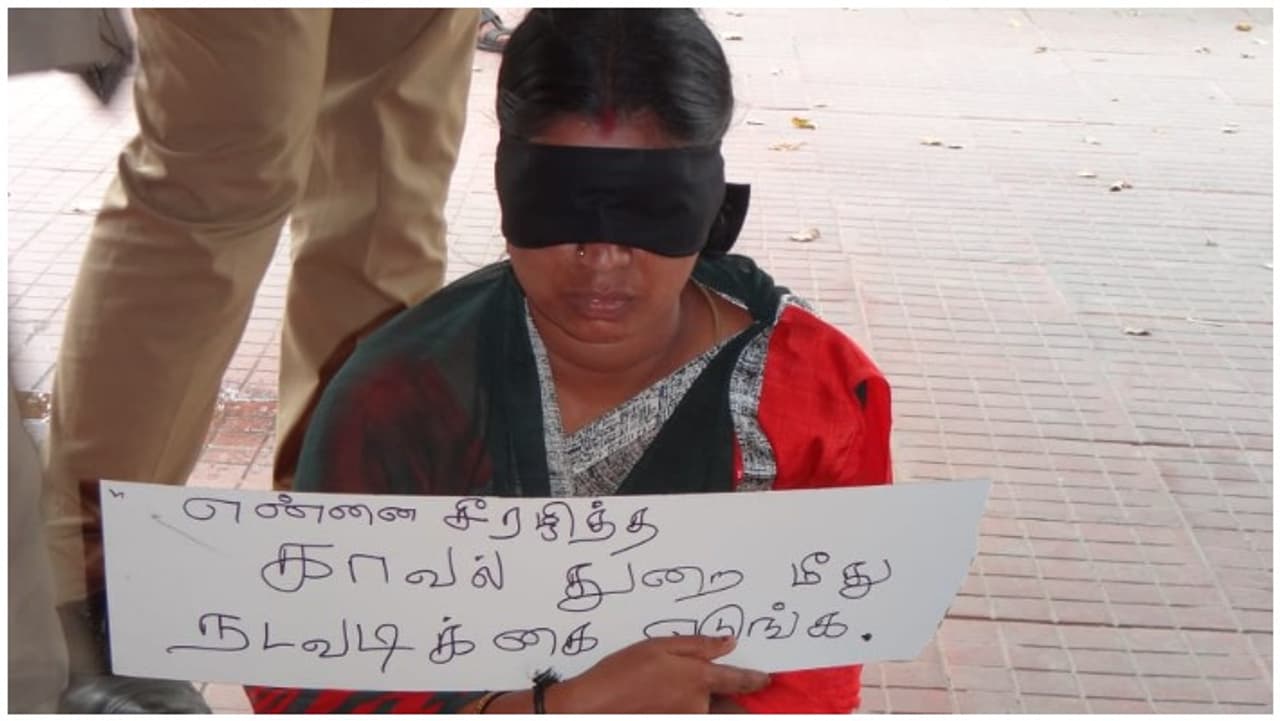 " என்னை சீரழித்த
காவல் துறை மீது
நடவடிக்கை எடுங்க.